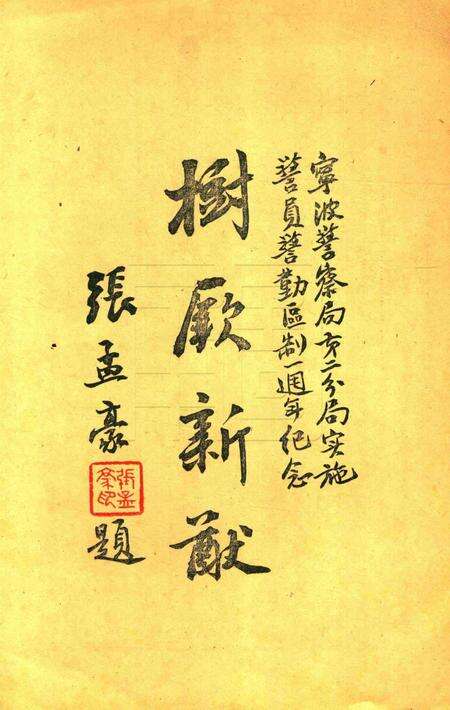 寧波警察局第二分局实施
警員警勤區制一週年紀念
樹厥新猷
張孟豪
張孟豪印
題